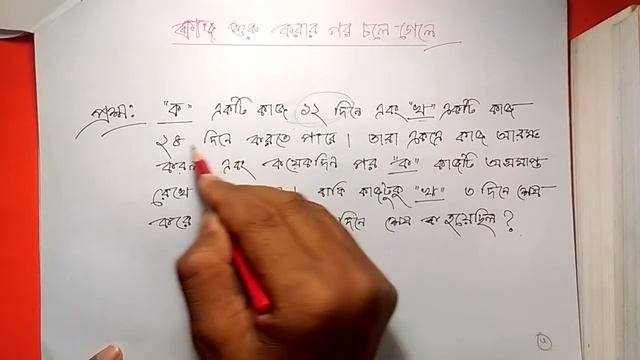 কাজ শুরু করার পর চলে গেলে
প্রশ্ন: "ক" একটি কাজ ১২ দিনে এবং "খ" একটি কাজ
২৪ দিনে করতে পারে। তারা একত্রে কাজ আরম্ভ
করল এবং কয়েকদিন পর "ক" কাজটি অসমাপ্ত
রেখে । বাকি কাজটুকু "খ" ৩ দিনে শেষ
করে দিনে শেষ হয়েছিল?